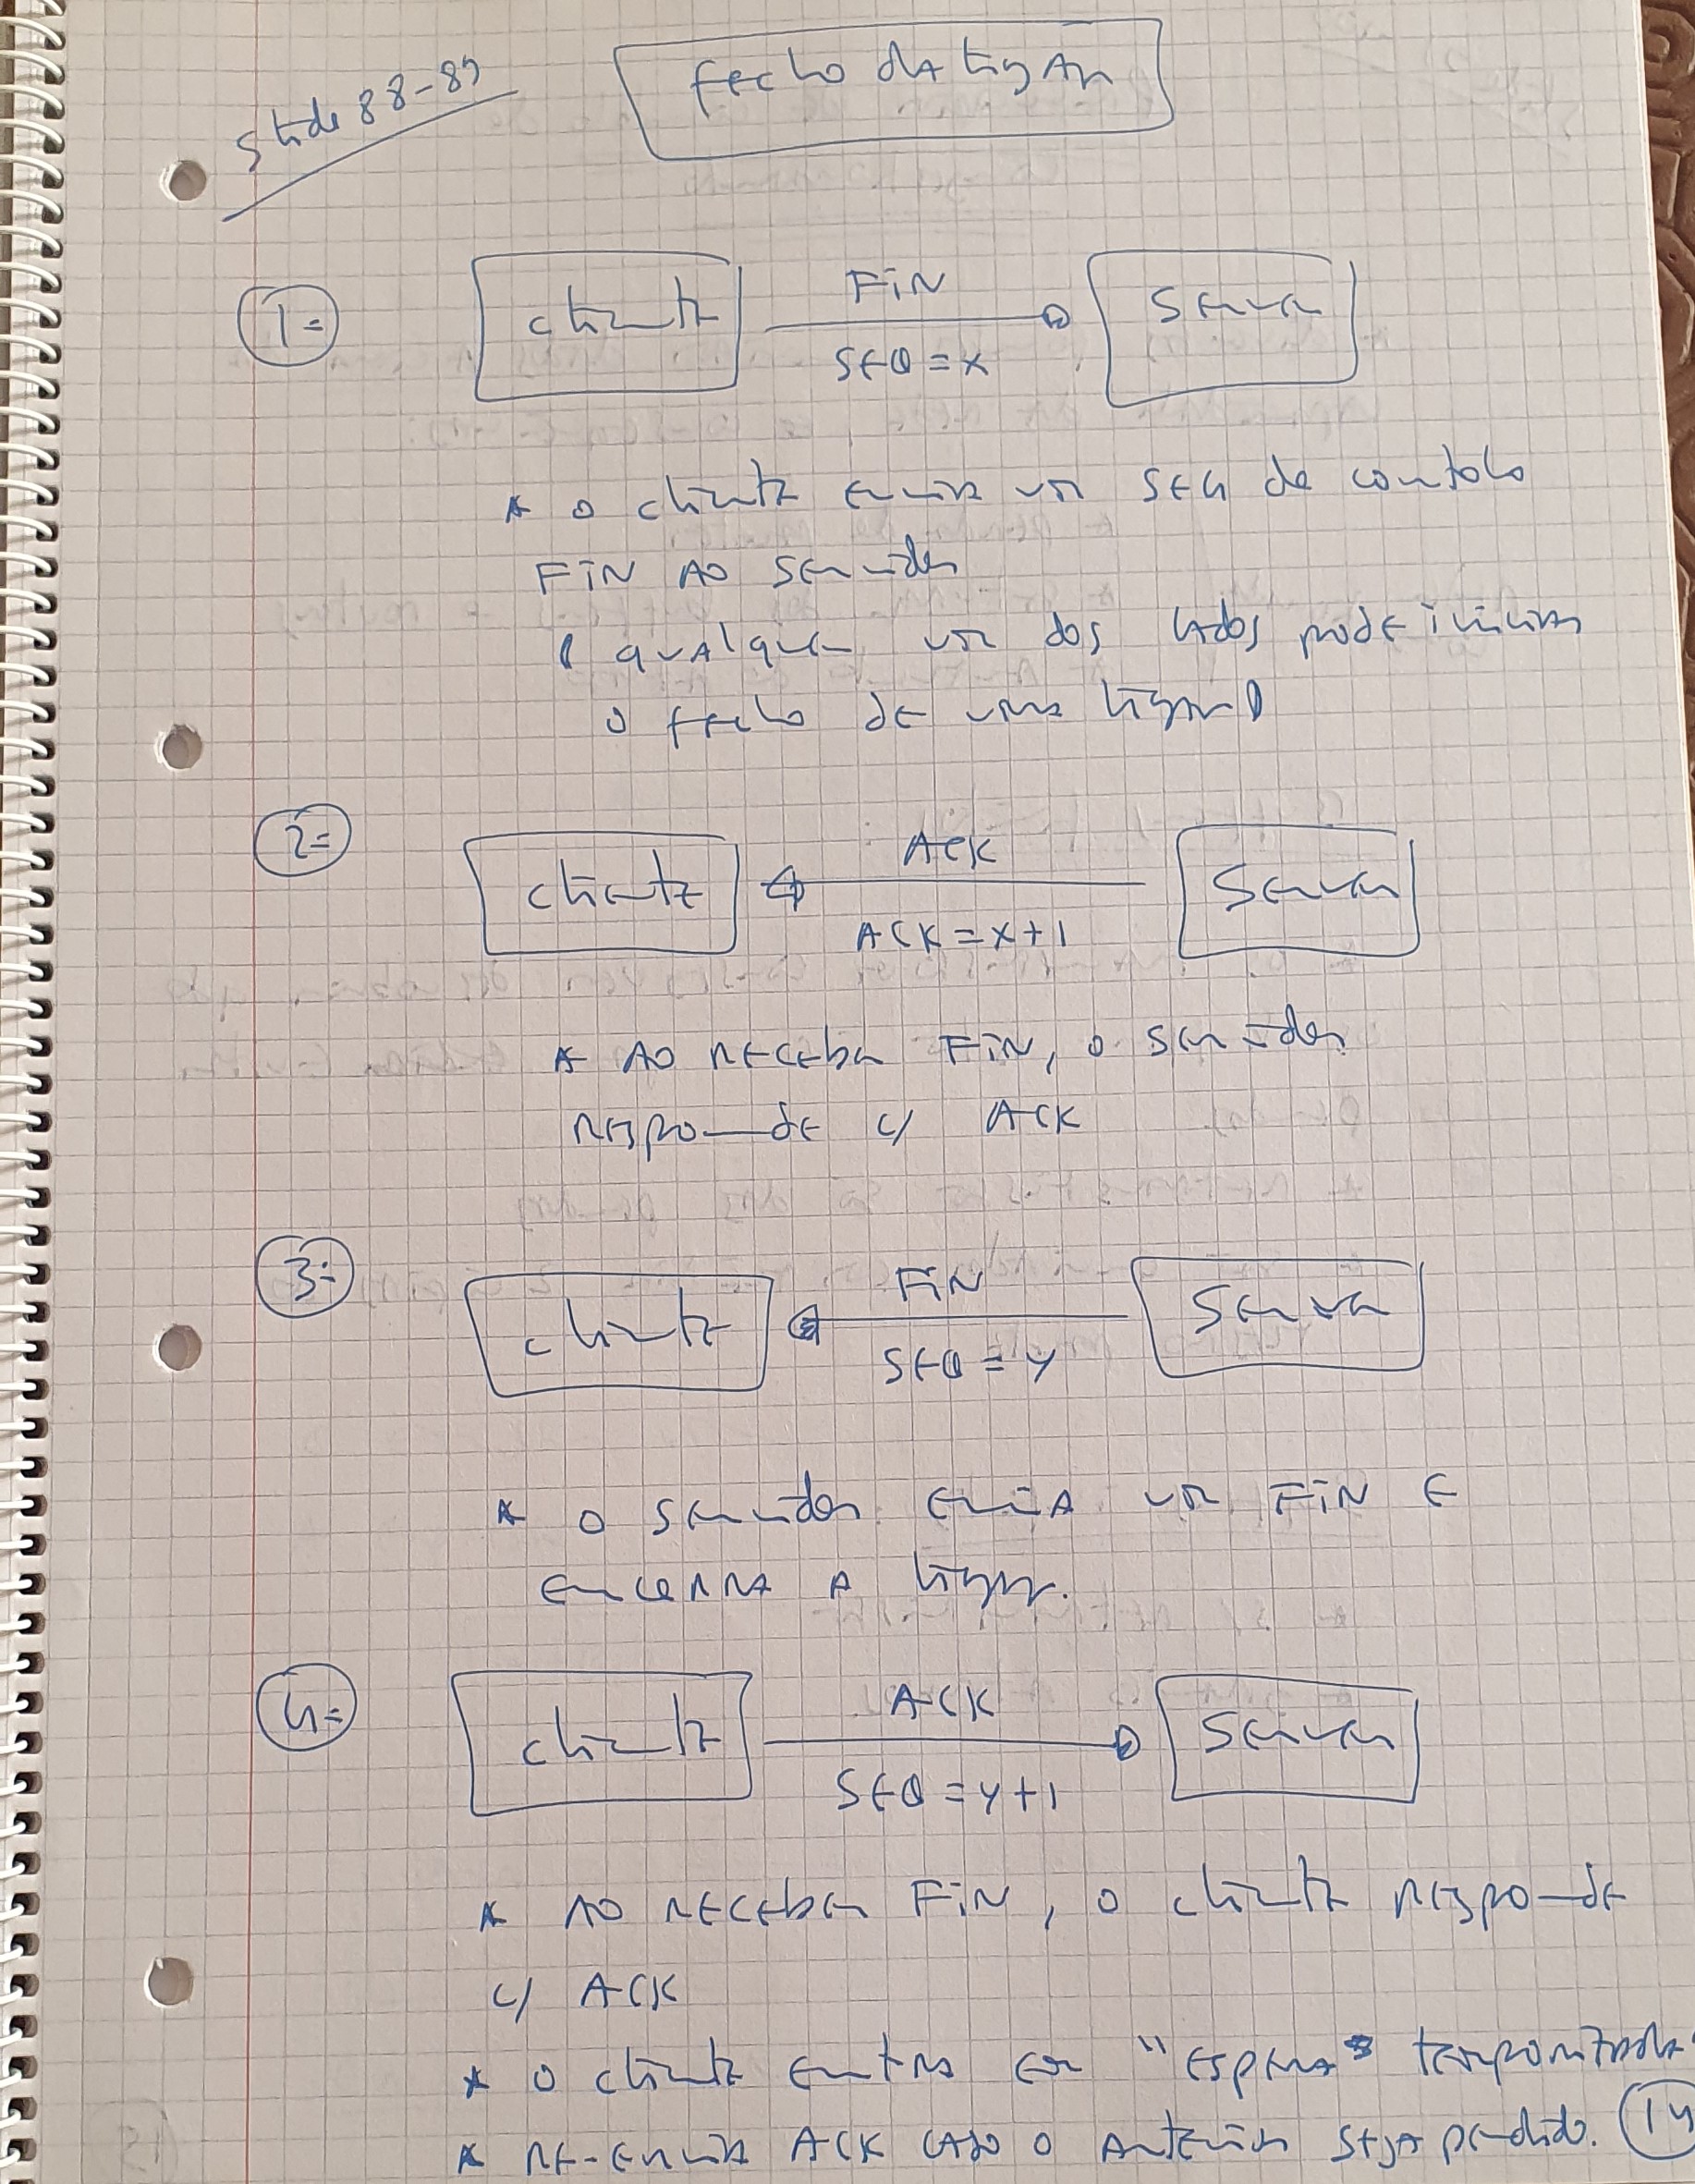 Slide 88-89
fecho da ligação
1=
cliente
FIN
SEQ = x
Server
* o cliente envia um SEG de controlo
FIN ao servidor
( qualquer um dos lados pode iniciar
o fecho de uma ligação )
2=
cliente
ACK
ACK = x+1
Server
* Ao receber FIN, o servidor
responde c/ ACK
3=
cliente
FIN
SEQ = y
Server
* o servidor envia um FIN e
encerra a ligação.
4=
cliente
ACK
SEQ = y+1
Server
* Ao receber FIN, o cliente responde
c/ ACK
* o cliente entra em "espera" temporizada"
* re-envia ACK caso o anterior seja perdido.
14